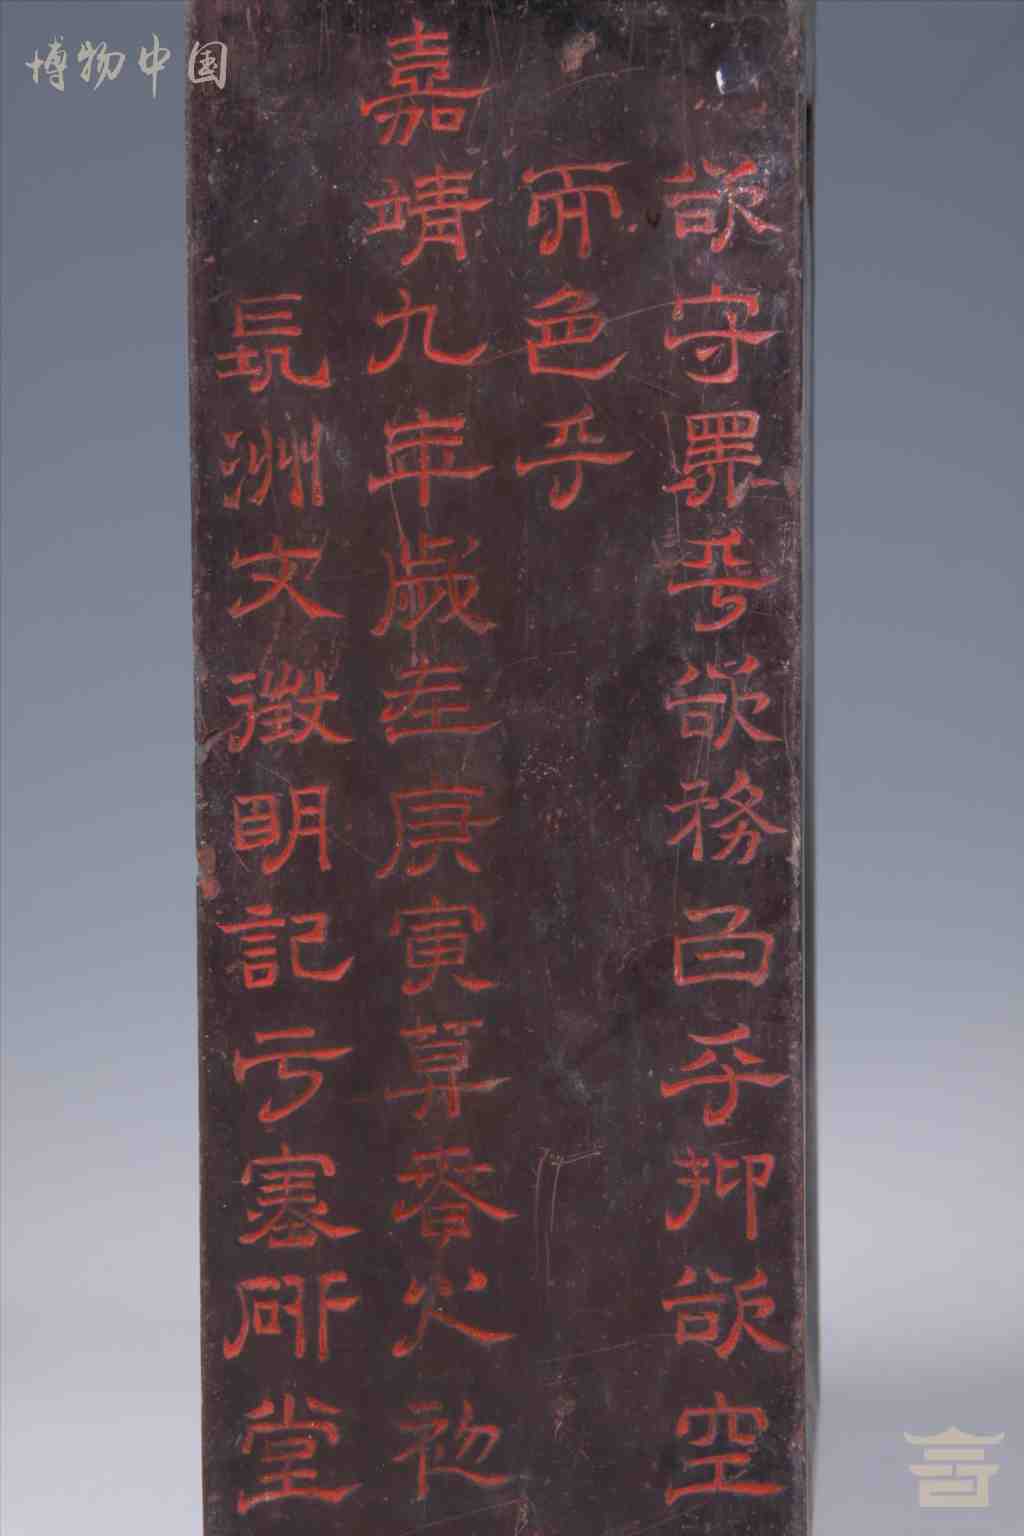 博物中国
欲守黑乎欲務白乎抑欲空
而色乎
嘉靖九年歲在庚寅莫春之初
長洲文徵明記亏塞研堂